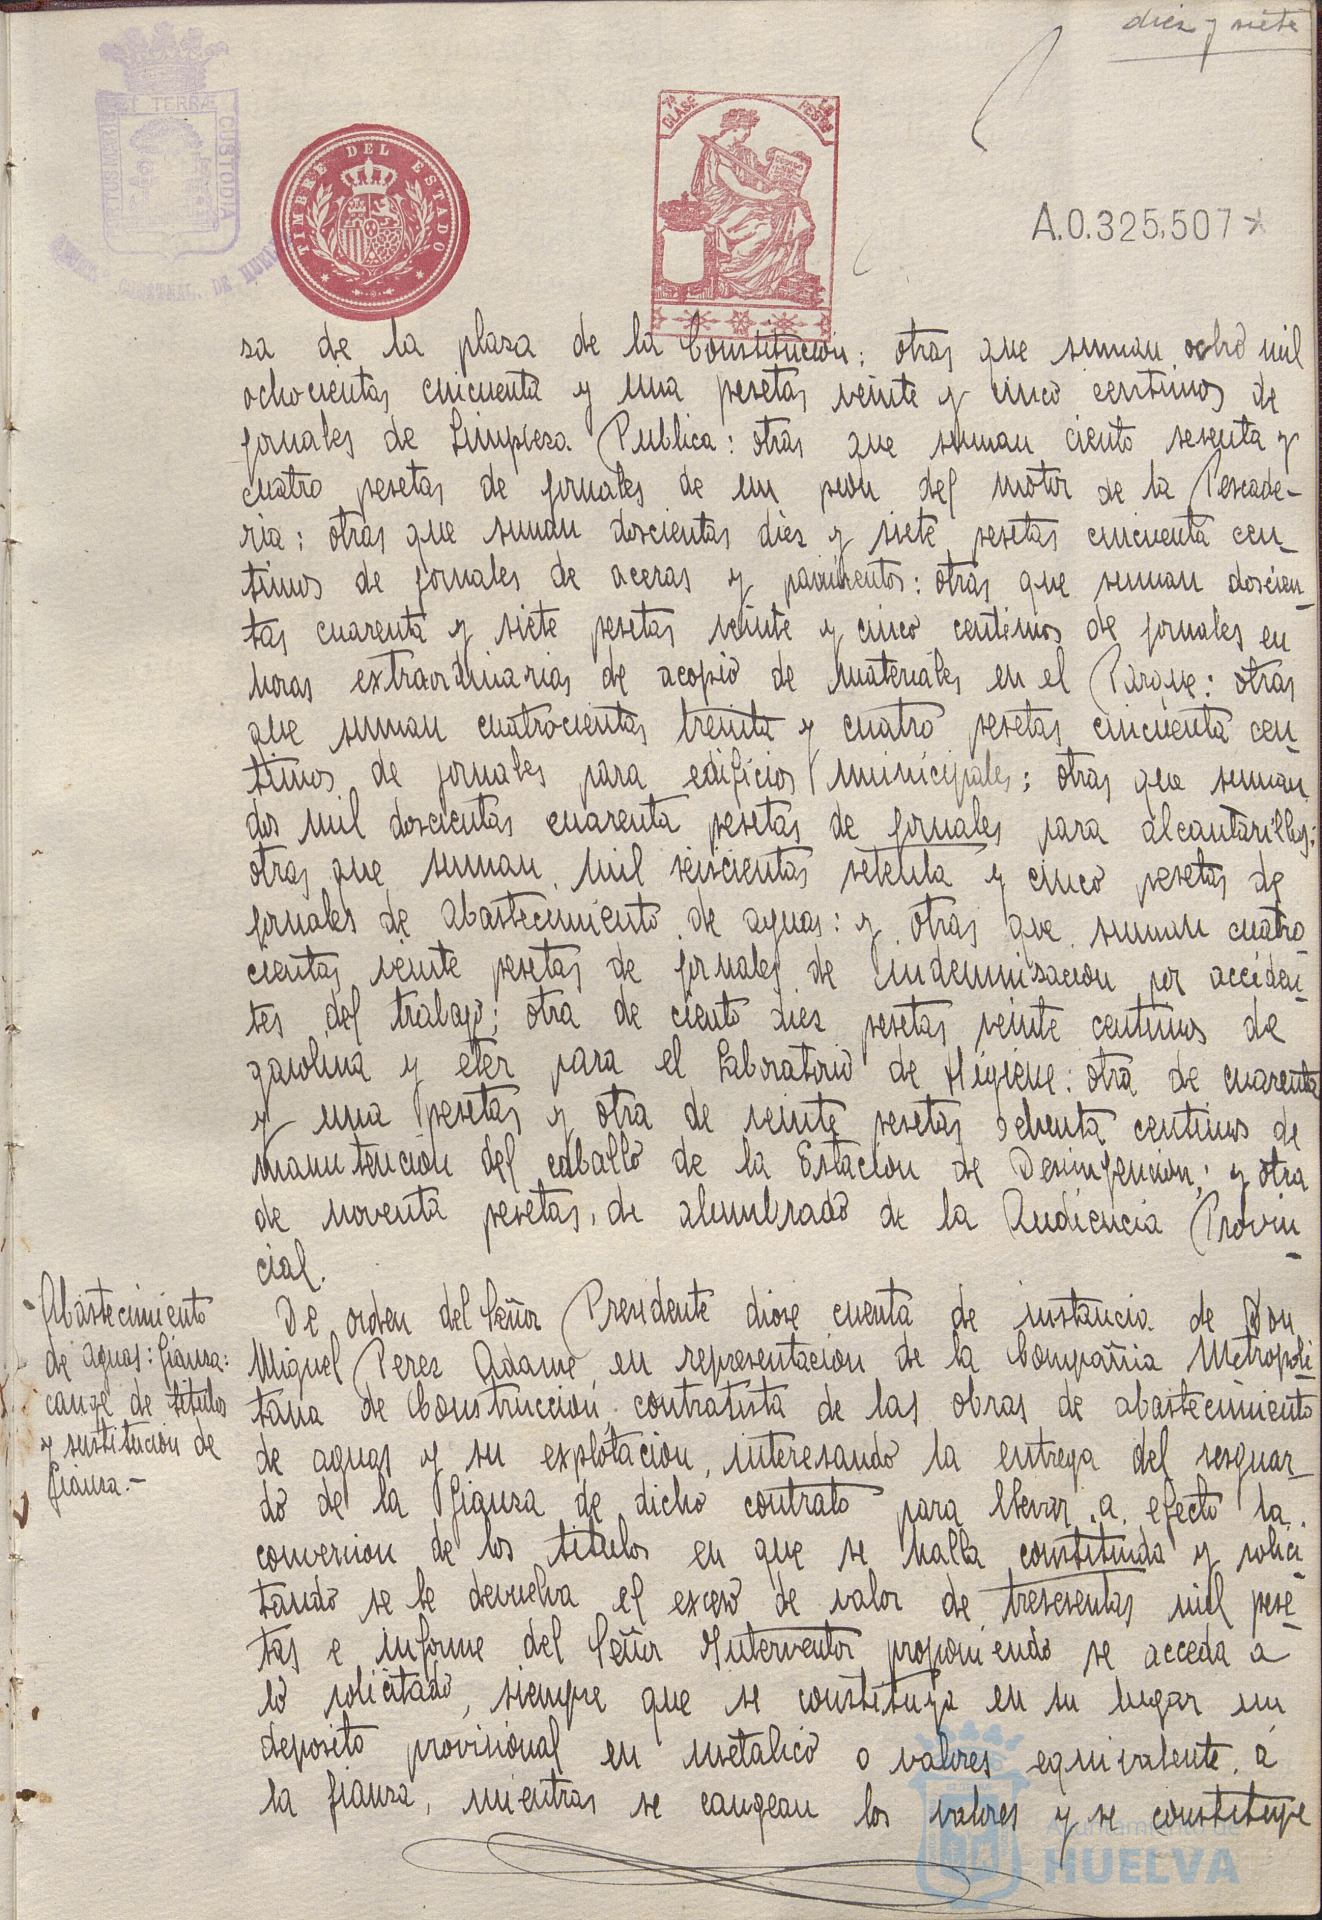 diez y siete
TIMBRE DEL ESTADO
7ª CLASE
PESETAS
A.0.325.507*
PORTUS MARIS ET TERRÆ CUSTODIA
za de la plaza de la Constitución: otras que suman ocho mil
ochocientas cincuenta y una pesetas veinte y cinco centimos de
jornales de Limpieza Publica: otras que suman ciento sesenta y
cuatro pesetas de jornales de un peon del motor de la Pescade-
ria: otras que suman doscientas diez y siete pesetas cincuenta cen-
timos de jornales de aceras y pavimentos: otras que suman doscien-
tas cuarenta y siete pesetas veinte y cinco centimos de jornales en
horas extraordinarias de acopio de materiales en el Parque: otras
que suman cuatrocientas treinta y cuatro pesetas cincuenta cen-
timos de jornales para edificios municipales: otras que suman
dos mil doscientas cuarenta pesetas de jornales para alcantarillas:
otras que suman mil seiscientas setenta y cinco pesetas de
jornales de abastecimiento de aguas: y otras que suman cuatro
cientas veinte pesetas de jornales de indemnizacion por acciden-
tes del trabajo; otra de ciento diez pesetas veinte centimos de
gasolina y eter para el Laboratorio de Higiene: otra de cuarenta
y una pesetas y otra de veinte pesetas ochenta centimos de
manutencion del caballo de la Estacion de Desinfeccion; y otra
de noventa pesetas, de alumbrado de la Audiencia Provin-
cial.
Abastecimiento
de aguas: fianza:
cange de titulos
y sustitucion de
fianza.-
De orden del Señor Presidente diose cuenta de instancia de Don
Miguel Perez Adame, en representacion de la Compañia Metropoli
tana de Construccion, contratista de las obras de abastecimiento
de aguas y su explotacion, interesando la entrega del resguar-
do de la fianza de dicho contrato para llevar a efecto la
conversion de los titulos en que se halla constituida y solici
tando se le devuelva el exceso de valor de trescientas mil pese-
tas e informe del Señor Interventor proponiendo se acceda a
lo solicitado, siempre que se constituya en su lugar un
deposito provisional en metalico o valores equivalente á
la fianza, mientras se cangean los valores y se constituye
Ayuntamiento de
HUELVA